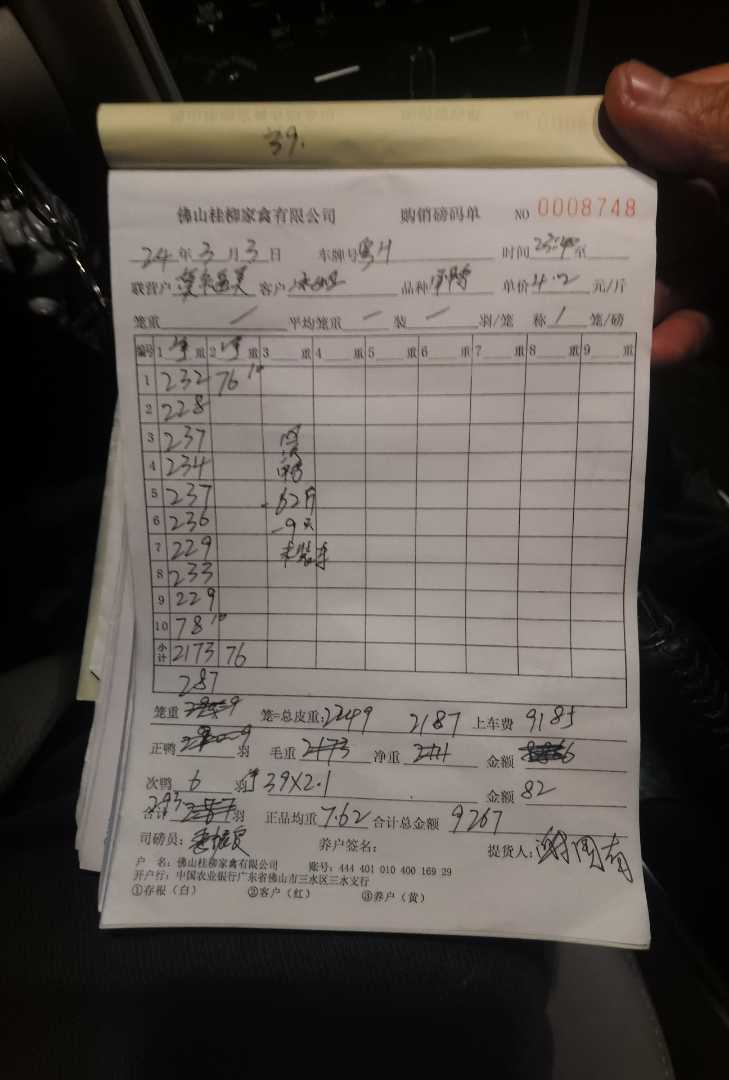 39.
佛山桂柳家禽有限公司 购销磅码单 NO 0008748
24 年 3 月 3 日 车牌号 时间 23:40 至
联营户 客户 品种 单价 4.2 元/斤
笼重 / 平均笼重 — 装 — 羽/笼 称 / 笼/磅
编号 1 重 2 重 3 重 4 重 5 重 6 重 7 重 8 重 9 重
1 232 76
2 228
3 237
4 234
5 237 62斤
6 236 9只
7 229 未装车
8 233
9 229
10 78
小计 2173 76
287
笼重 笼=总皮重: 2249 2187 上车费 9185
正鸭 羽 毛重 净重 金额
次鸭 6 羽 39X2.1 金额 82
合计 293 羽 正品均重 7.62 合计总金额 9267
司磅员: 养户签名: 提货人:
户 名: 佛山桂柳家禽有限公司 账号: 444 401 010 400 169 29
开户行: 中国农业银行广东省佛山市三水区三水支行
①存根(白) ②客户(红) ③养户(黄)